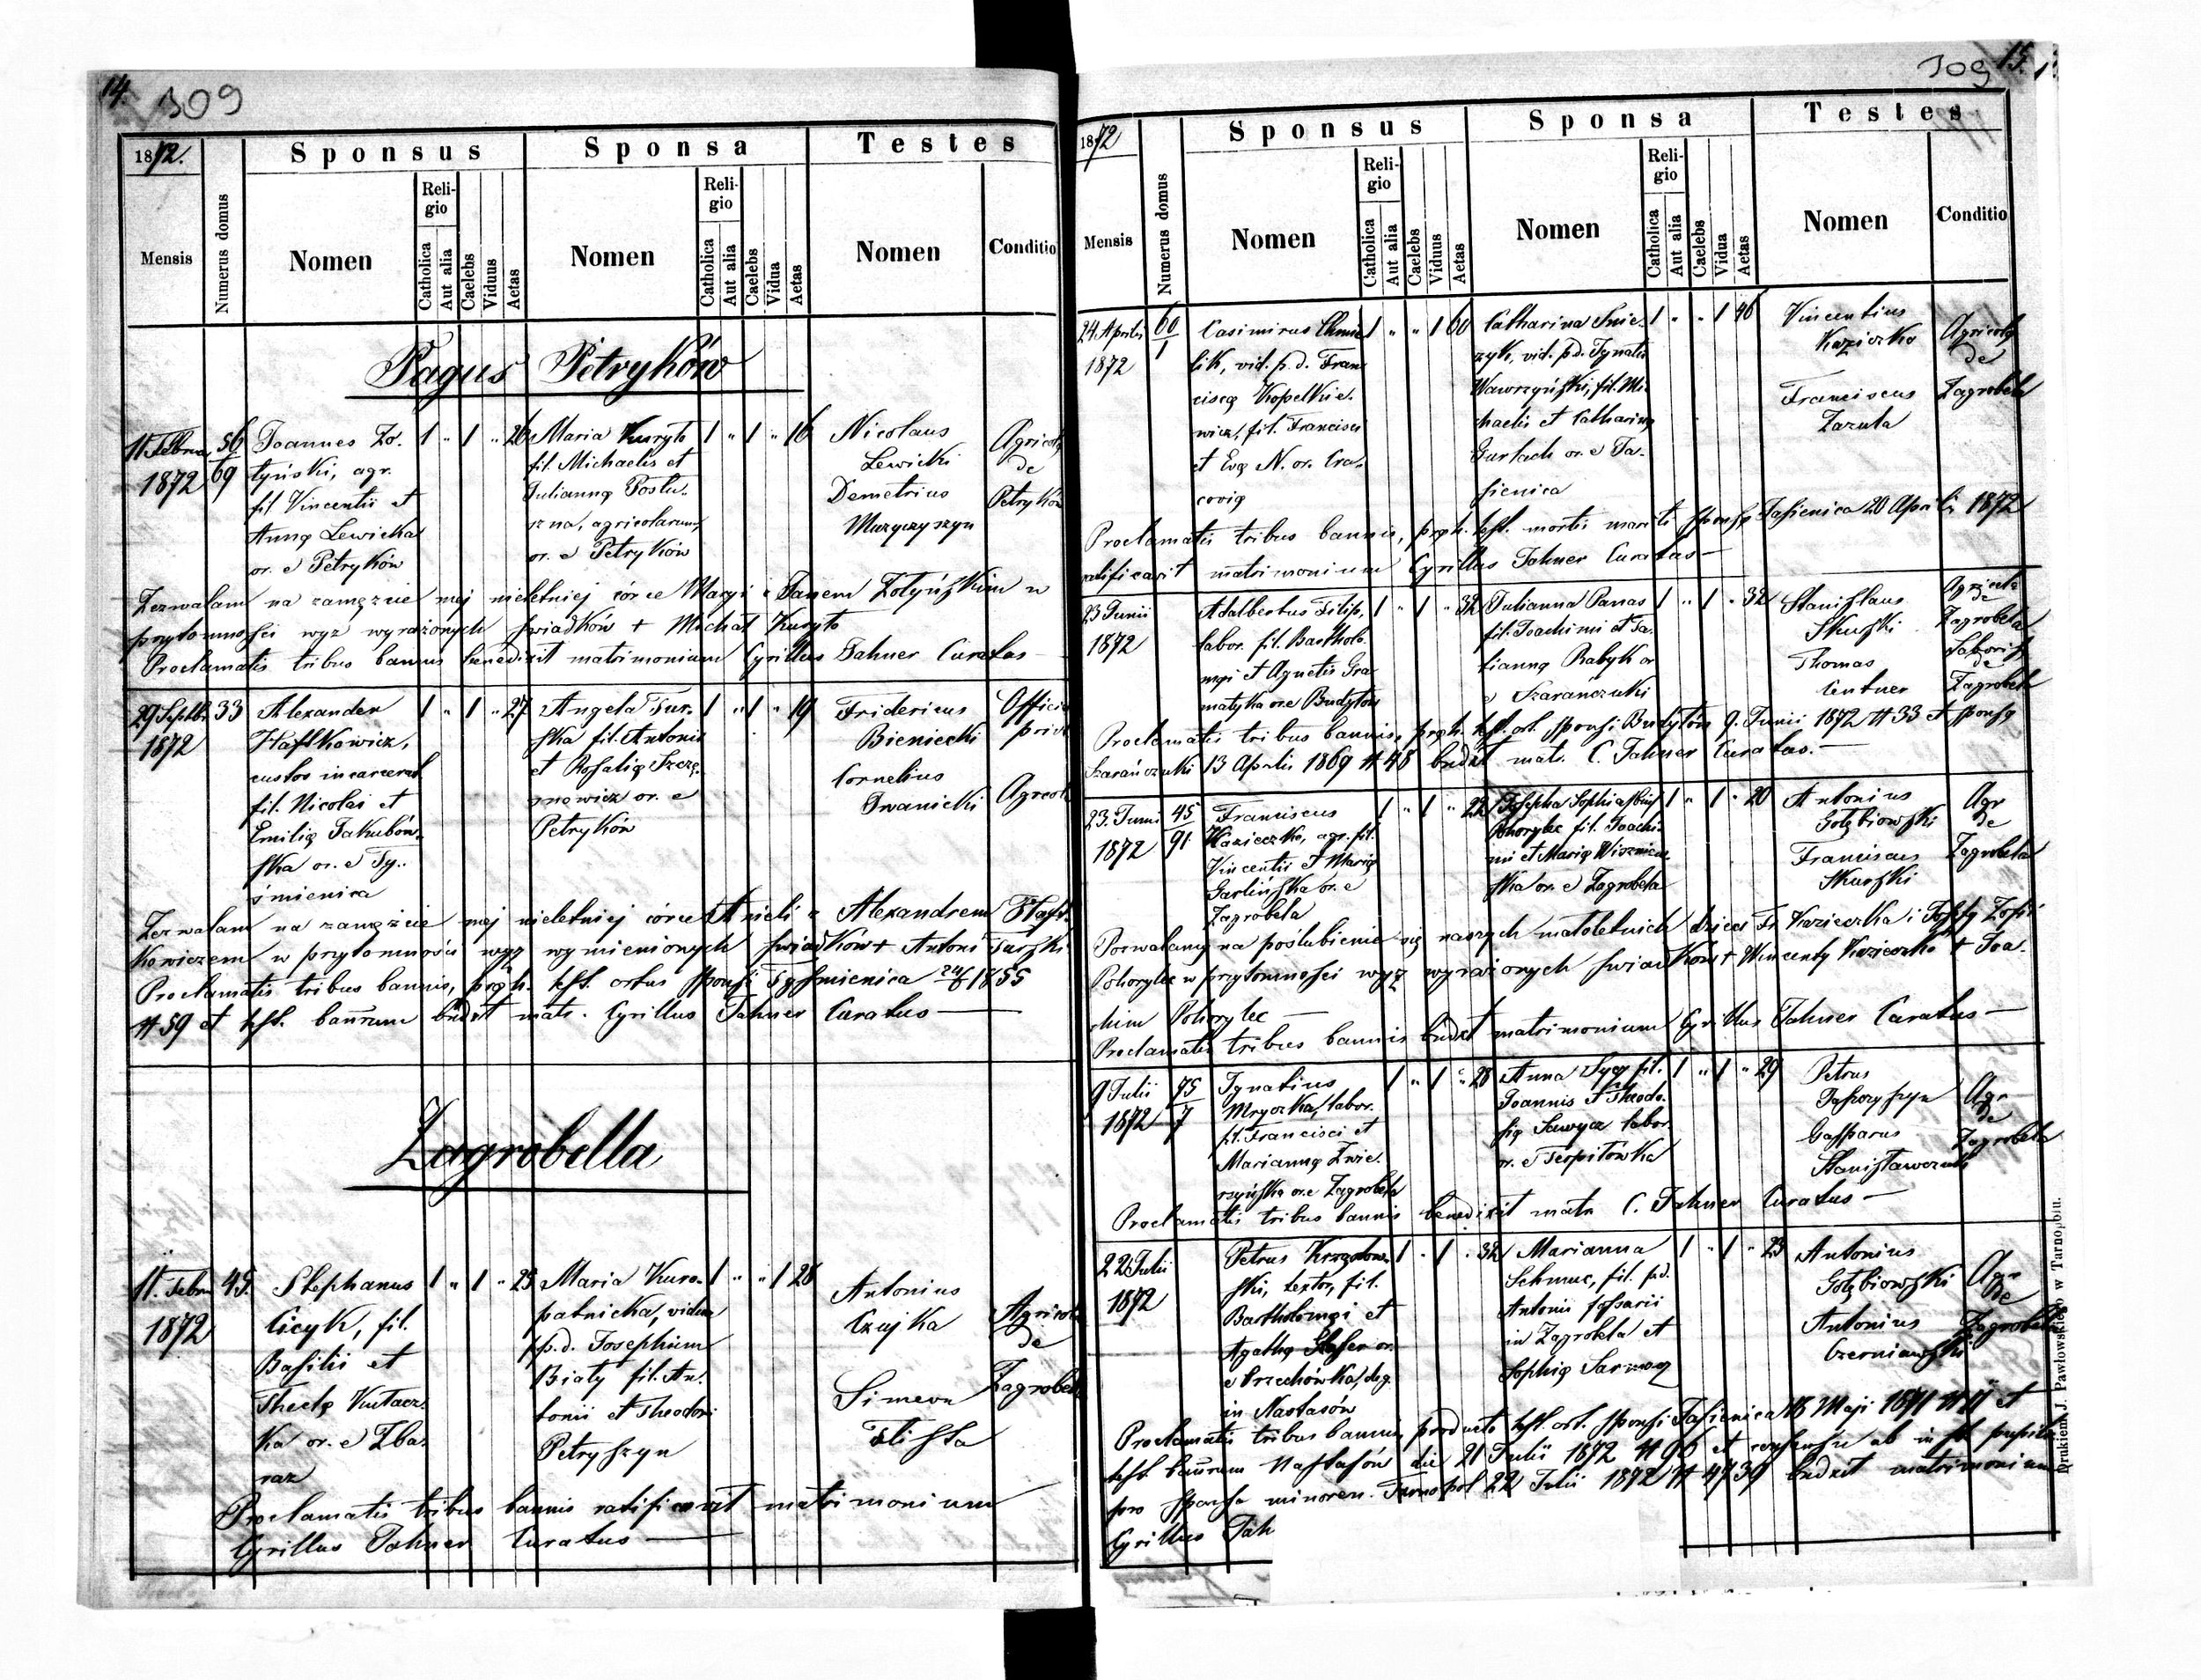 14.
309
1872.
Sponsus
Sponsa
Testes
Mensis
Numerus domus
Nomen
Religio
Catholica
Aut alia
Caelebs
Viduus
Aetas
Nomen
Religio
Catholica
Aut alia
Caelebs
Vidua
Aetas
Nomen
Conditio
Pagus Petryków
11 Febru
1872
56
69
Joannes Zo-
tyński, agr.
fil Vincentii et
Anna Lewicka
or. e Petryków
1 " 1 " 26
Maria Kuryło
fil. Michaelis et
Julianna Poslu-
szna, agricolarum
or. e Petryków
1 " 1 " 16
Nicolaus
Lewicki
Demetrius
Agricola
de
Petryków
Zezwalam na zamęzcie mej nieletniej córce Maryi z Janem Zotyńskim w
przytomności wyż wyrażonych świadków + Michał Kuryło
Proclamatis tribus bannis benedixit matrimonium Cyrillus Jahner Curatus
29 Septb
1872
33
Alexander
Haftkowicz,
custos incarcerat
fil. Nicolai et
Emilia Jakubów-
ska or. e Ty-
śmienica
1 " 1 " 27
Angela Tur-
ska fil. Antonii
et Rosalia Szczę-
snowicz or. e
Petryków
1 " 1 " 19
Fridericus
Bieniecki
Cornelius
Iwanicki
Offici
priv
Agricola
Zezwalam na zamęzcie mej nieletniej córce Anieli z Alexandrem Haft-
kowiczem w przytomności wyż wymienionych świadków + Antoni Turski
Proclamatis tribus bannis, prgh. tst. ortus sponsi Tyśmienica 24/6 1855
# 59 et tst. bannrum bndxt matr. Cyrillus Jahner Curatus
Zagrobella
11. Febru
1872
45.
Stephanus
Cicyk, fil.
Basilii et
Thecla Kutacz-
ka or. e Zba-
raz
1 " 1 " 25
Maria Kuro-
patnicka, vidua
p.d. Josephum
Biały fil. An-
tonii et Theodori
Petryszyn
1 " " 1 28
Antonius
Czajka
Simeon
Agricola
de
Zagrobela
Proclamatis tribus bannis ratificavit matrimonium
Cyrillus Jahner Curatus
309
15.
1872
Sponsus
Sponsa
Testes
Mensis
Numerus domus
Nomen
Religio
Catholica
Aut alia
Caelebs
Viduus
Aetas
Nomen
Religio
Catholica
Aut alia
Caelebs
Vidua
Aetas
Nomen
Conditio
24 Aprilis
1872
60
1
Casimirus Chmie-
lik, vid. p.d. Fran-
cisca Kopelkie-
wicz, fil. Francisci
et Eva N. or. Cra-
covia
1 " " 1 60
Catharina Snie-
zyk, vid. p.d. Ignatii
Wawrzyński, fil. Mi-
chaelis et Catharina
Gurlach or. e Ja-
sienica
1 " " 1 46
Vincentius
Kaziczka
Franciscus
Zazula
Agricola
de
Zagrobela
Proclamatis tribus bannis, prgh. tst. mortis mariti sponsa Jasienica 20 Aprilis 1872
ratificavit matrimonium Cyrillus Jahner Curatus
23 Junii
1872
Adalbertus Filip,
labor. fil. Bartholo-
mei et Agnetis Gra-
matyka or. e Budytów
1 " 1 " 32
Julianna Panas
fil. Joachimi et Ta-
tianna Babyk or
e Szarańczuki
1 " 1 " 32
Stanislaus
Skurski
Thomas
Centner
Agricola
de
Zagrobela
Laboris
de
Zagrobela
Proclamatis tribus bannis, prgh. tst. ort. sponsi Budytów 9. Junii 1872 # 33 et sponsa
Szarańczuki 13 Aprilis 1869 # 48 bndxt mat. C. Jahner Curatus.
23. Junii
1872
45
91
Franciscus
Kazieczko, agr. fil.
Vincentii et Maria
Garlińska or. e
Zagrobela
1 " 1 " 22
Josepha Sophia
Pohorylec fil. Joachi-
mi et Maria Wiszniew-
ska or. e Zagrobela
1 " 1 " 20
Antonius
Gołębiowski
Franciscus
Skurski
Agr
de
Zagrobela
Pozwalamy na poślubienie się naszych małoletnich dzieci Fr. Kazieczka i Józefy Zofii
Pohorylec w przytomności wyż wyrażonych świadków + Wincenty Kazieczko + Joa-
chim Pohorylec
Proclamatis tribus bannis bndxt matrimonium Cyrillus Jahner Curatus
9 Julii
1872
75
7
Ignatius
Mryczka, labor.
fil. Francisci et
Marianna Zwie-
rzyńska or. e Zagrobela
1 " 1 " 28
Anna Syez fil.
Joannis et Theodo-
sia Sawycz labor.
or. e Teofilówka
1 " 1 " 29
Petrus
Gasparus
Stanisławczuk
Agr
de
Zagrobela
Proclamatis tribus bannis benedixit matr C. Jahner Curatus
22 Julii
1872
Petrus
ski, textor, fil.
Bartholomei et
Agatha
in Nastasów
1 " 1 " 32
Marianna
Schmuc, fil. p.d.
Antonii fossarii
in Zagrobela et
Sophia
1 " 1 " 23
Antonius
Gołębiowski
Antonius
Czerniawski
Agr
de
Zagrobela
Proclamatis tribus bannis producto tst. ort. sponsi Jasienica 18 Maji 1841 et
tst. bannrum Nastasów die 21 Julii 1872 # 96 et consensu ab
pro sponsa minoren. Tarnopol 22 Julii 1872 # 4739 bndxit matrimonium
Cyrillus Jah
Drukiem J. Pawłowskiego w Tarnopolu.